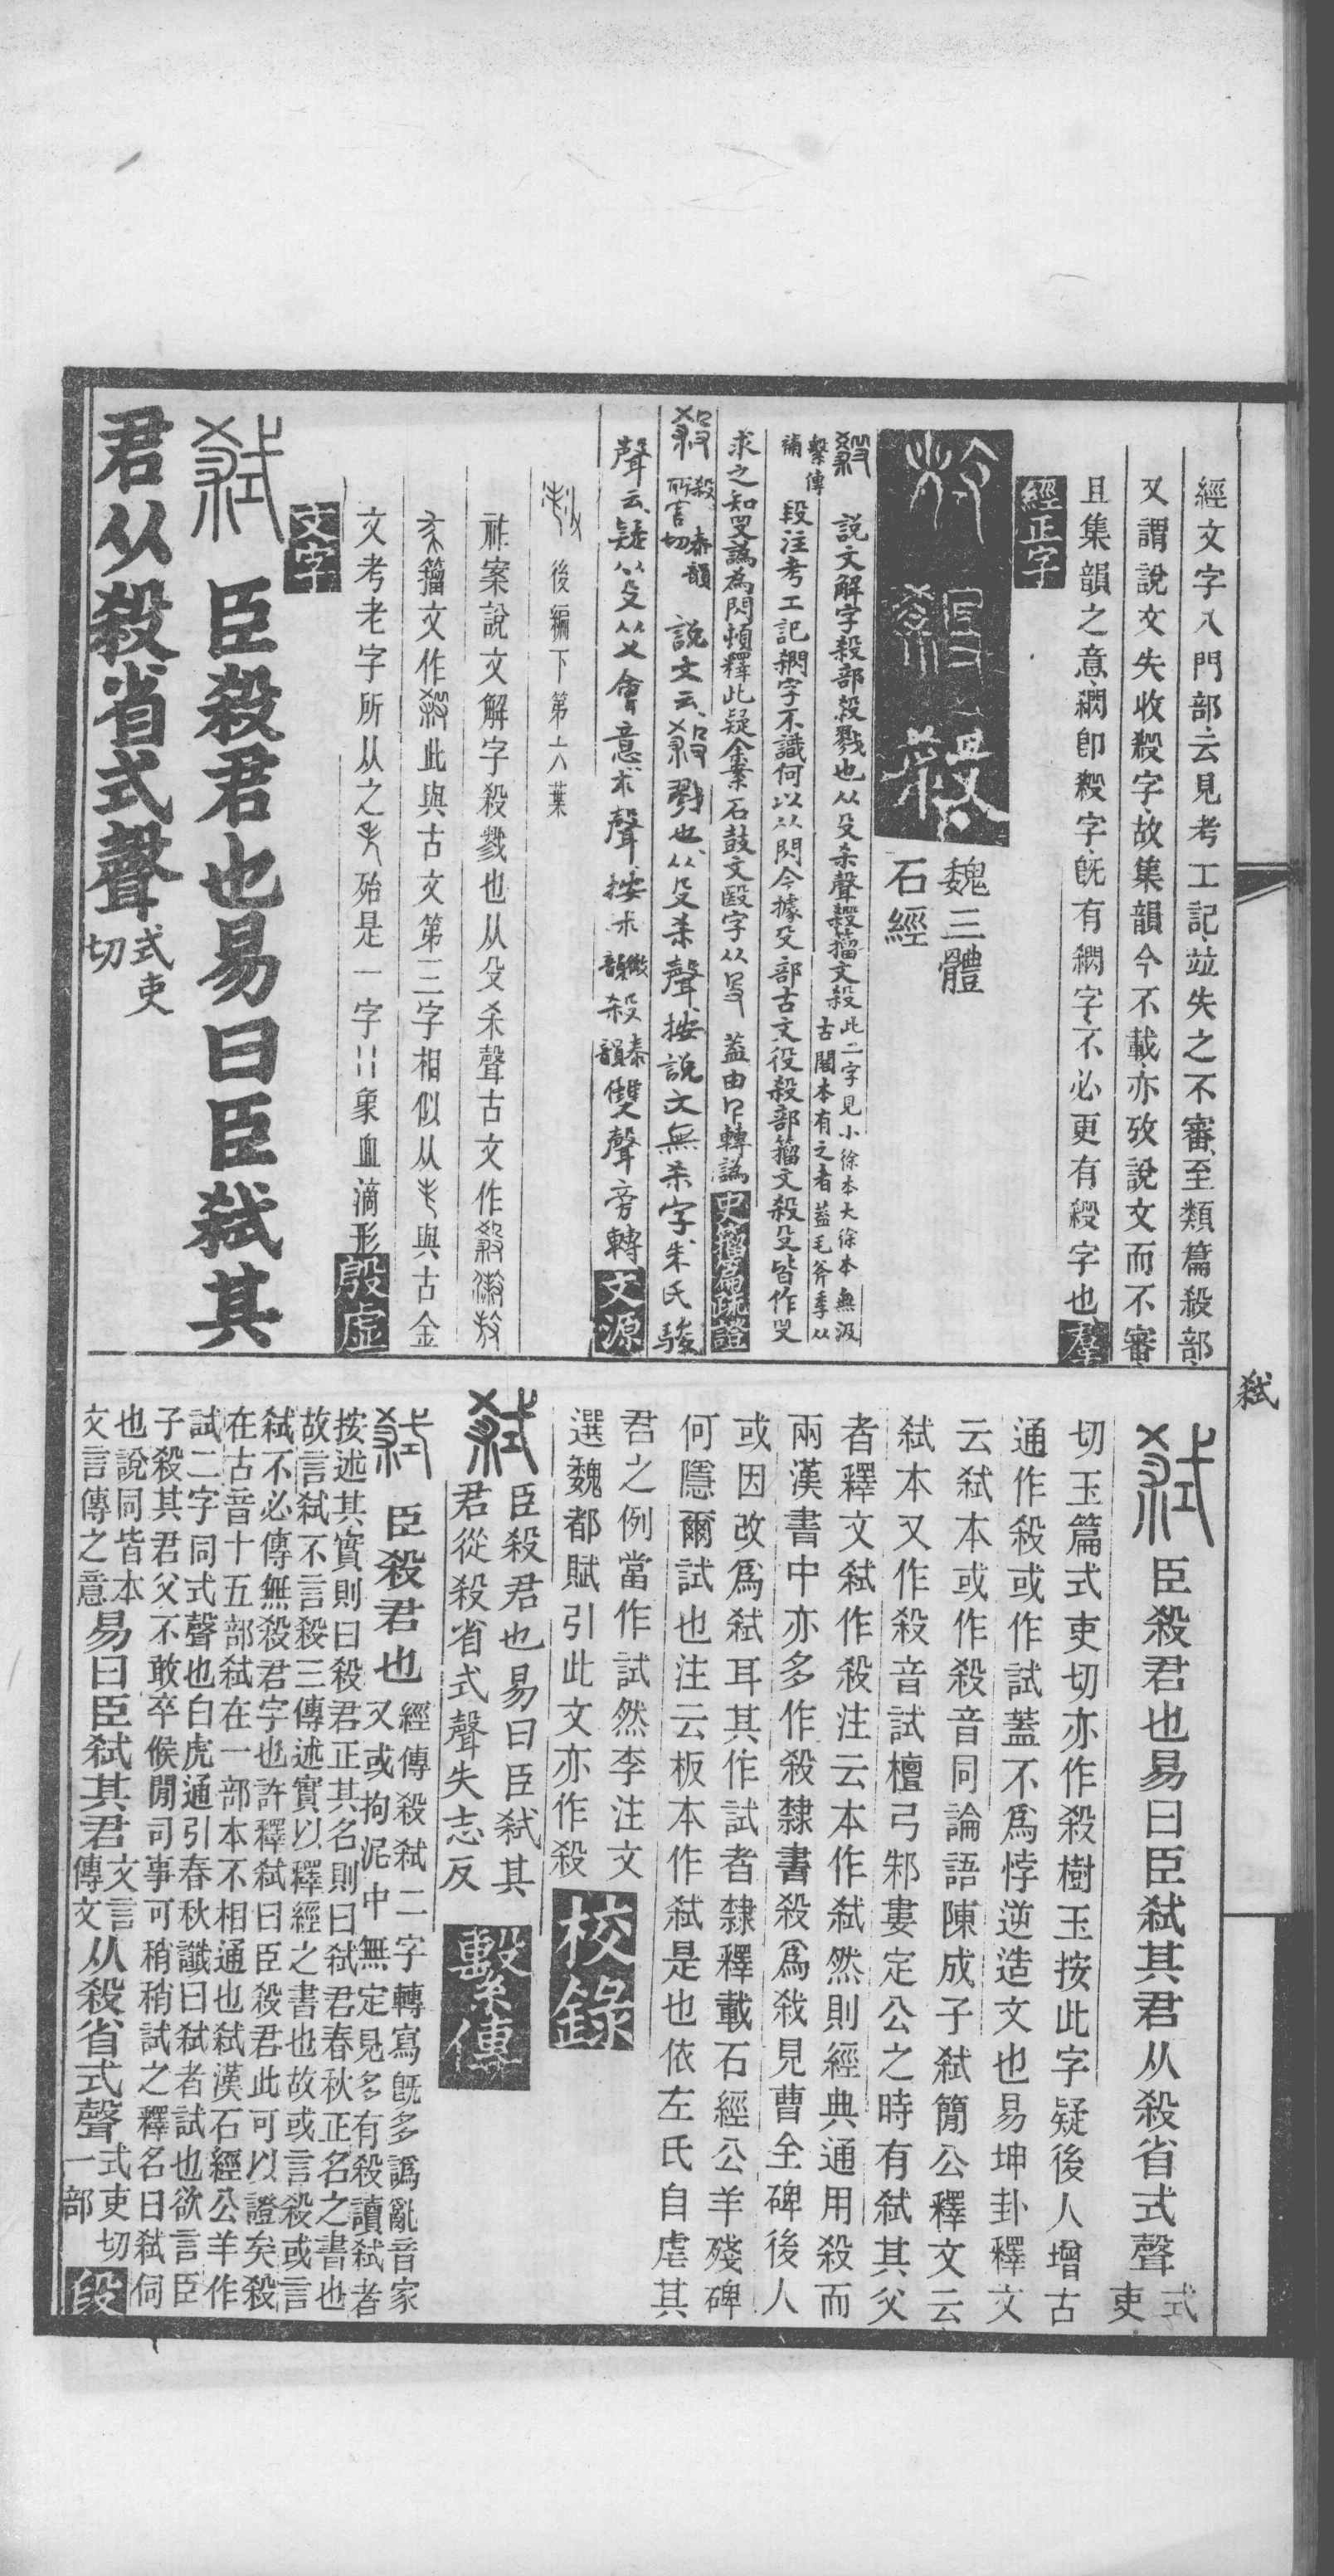 經文字入門部云見考工記竝失之不審至類篇殺部
又謂說文失收殺字故集韻今不載亦攷說文而不審
且集韻之意䦨卽殺字旣有䦨字不必更有殺字也羣
經正字
魏三體
石經
說文解字殺部殺戮也从殳杀聲 籒文殺此二字見小徐本大徐本無汲
古閣本有之者蓋毛斧季从
繫傳
補
段注考工記 字不識何以从門今據殳部古文役殺部籒文殺殳皆作
求之知 譌為門頓釋此疑余案石鼓文 字从 蓋由 轉譌史籒篇疏證
殺泰韻
所害切
說文云 戮也从殳杀聲按說文無杀字朱氏駿
聲云疑从殳从乂會意朮聲按朮微韻殺泰韻雙聲旁轉文源
後編下第六葉
案說文解字殺戮也从殳杀聲古文作
籒文作 此與古文第三字相似从 與古金
文考老字所从之 殆是一字 象血滴形殷虛
文字
臣殺君也易曰臣弒其
君从殺省式聲式吏
切
弒
臣殺君也易曰臣弒其君从殺省式聲式
吏
切玉篇式吏切亦作殺樹玉按此字疑後人增古
通作殺或作試蓋不爲悖逆造文也易坤卦釋文
云弒本或作殺音同論語陳成子弒簡公釋文云
弒本又作殺音試檀弓邾婁定公之時有弒其父
者釋文弒作殺注云本作弒然則經典通用殺而
兩漢書中亦多作殺隸書殺爲煞見曹全碑後人
或因改爲弒耳其作試者隸釋載石經公羊殘碑
何隱爾試也注云板本作弒是也依左氏自虐其
君之例當作試然李注文
選魏都賦引此文亦作殺校錄
臣殺君也易曰臣弒其
君從殺省式聲失志反繫傳
臣殺君也經傳殺弒二字轉寫旣多譌亂音家
又或拘泥中無定見多有殺讀弒者
按述其實則曰殺君正其名則曰弒君春秋正名之書也
故言弒不言殺三傳述實以釋經之書也故或言殺或言
弒不必傳無殺君字也許釋弒曰臣殺君此可以證矣殺
在古音十五部弒在一部本不相通也弒漢石經公羊作
試二字同式聲也白虎通引春秋讖曰弒者試也欲言臣
子殺其君父不敢卒候閒司事可稍稍試之釋名曰弒伺
也說同皆本
文言傳之意易曰臣弒其君文言
傳文从殺省式聲式吏切
一部段